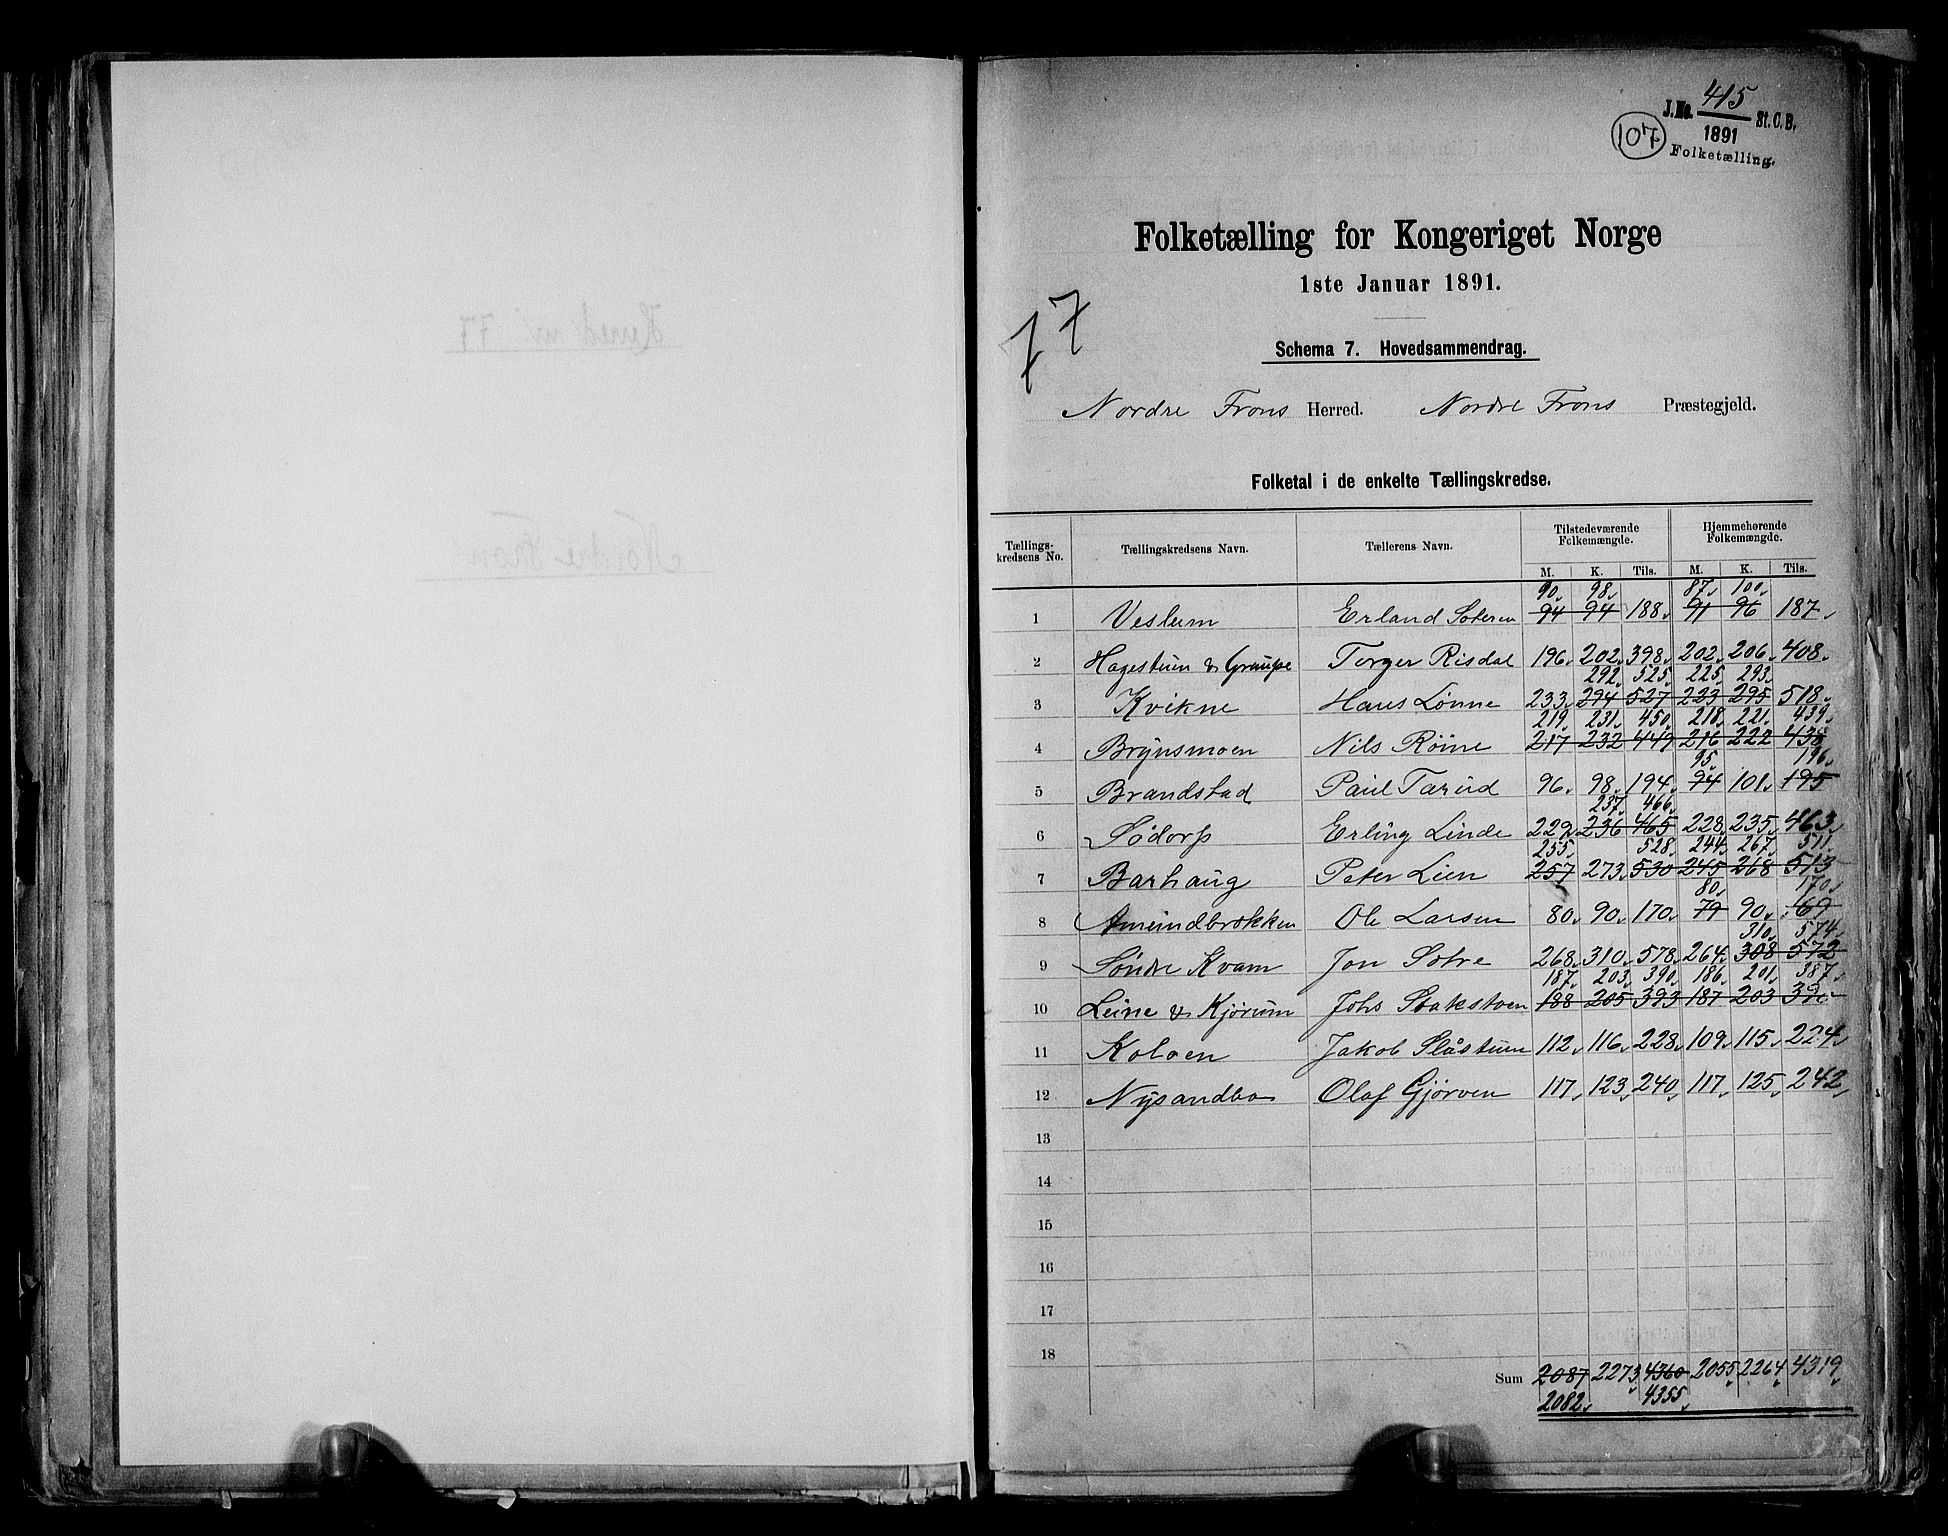 J.No. 415 / 1891 St.C.B.
107
Folketælling.
Folketælling for Kongeriget Norge
1ste Januar 1891.
77
Schema 7. Hovedsammendrag.
Nordre Frons Herred. Nordre Frons Præstegjeld.
Folketal i de enkelte Tællingskredse.
Tællings-kredsens No. Tællingskredsens Navn. Tællerens Navn. Tilstedeværende Folkemængde. Hjemmehørende Folkemængde.
M. K. Tils. M. K. Tils.
90 98 87 100
1 Veslum Erland 94 94 188 91 96 187
2 Hagestuen & Graupe Torger Risdal 196 202 398 202 206 408
292 525 225 293
3 Kvikne Hans Lönne 233 294 527 223 295 518
219 231 450 218 221 439
4 Brynsmoen Nils Röine 217 232 449 216 222 438
95 196
5 Brandstad Paul Tarud 96 98 194 94 101 195
237 466
6 Södorp Erling Linde 229 236 465 228 235 463
255 528 244 267 511
7 Barhaug Peter Lien 257 273 530 245 268 513
80 170
8 Ole Larsen 80 90 170 79 90 169
310 574
9 Söndre Kvam Jon Sotre 268 310 578 264 308 572
187 203 390 186 201 387
10 Leine & Kjörum Johs 188 205 393 187 203 390
11 Koloen Jakob Slåstuen 112 116 228 109 115 224
12 Nysandbo Olaf Gjörven 117 123 240 117 125 242
13
14
15
16
17
18
Sum 2087 2273 4360 2055 2264 4319
2082 4355